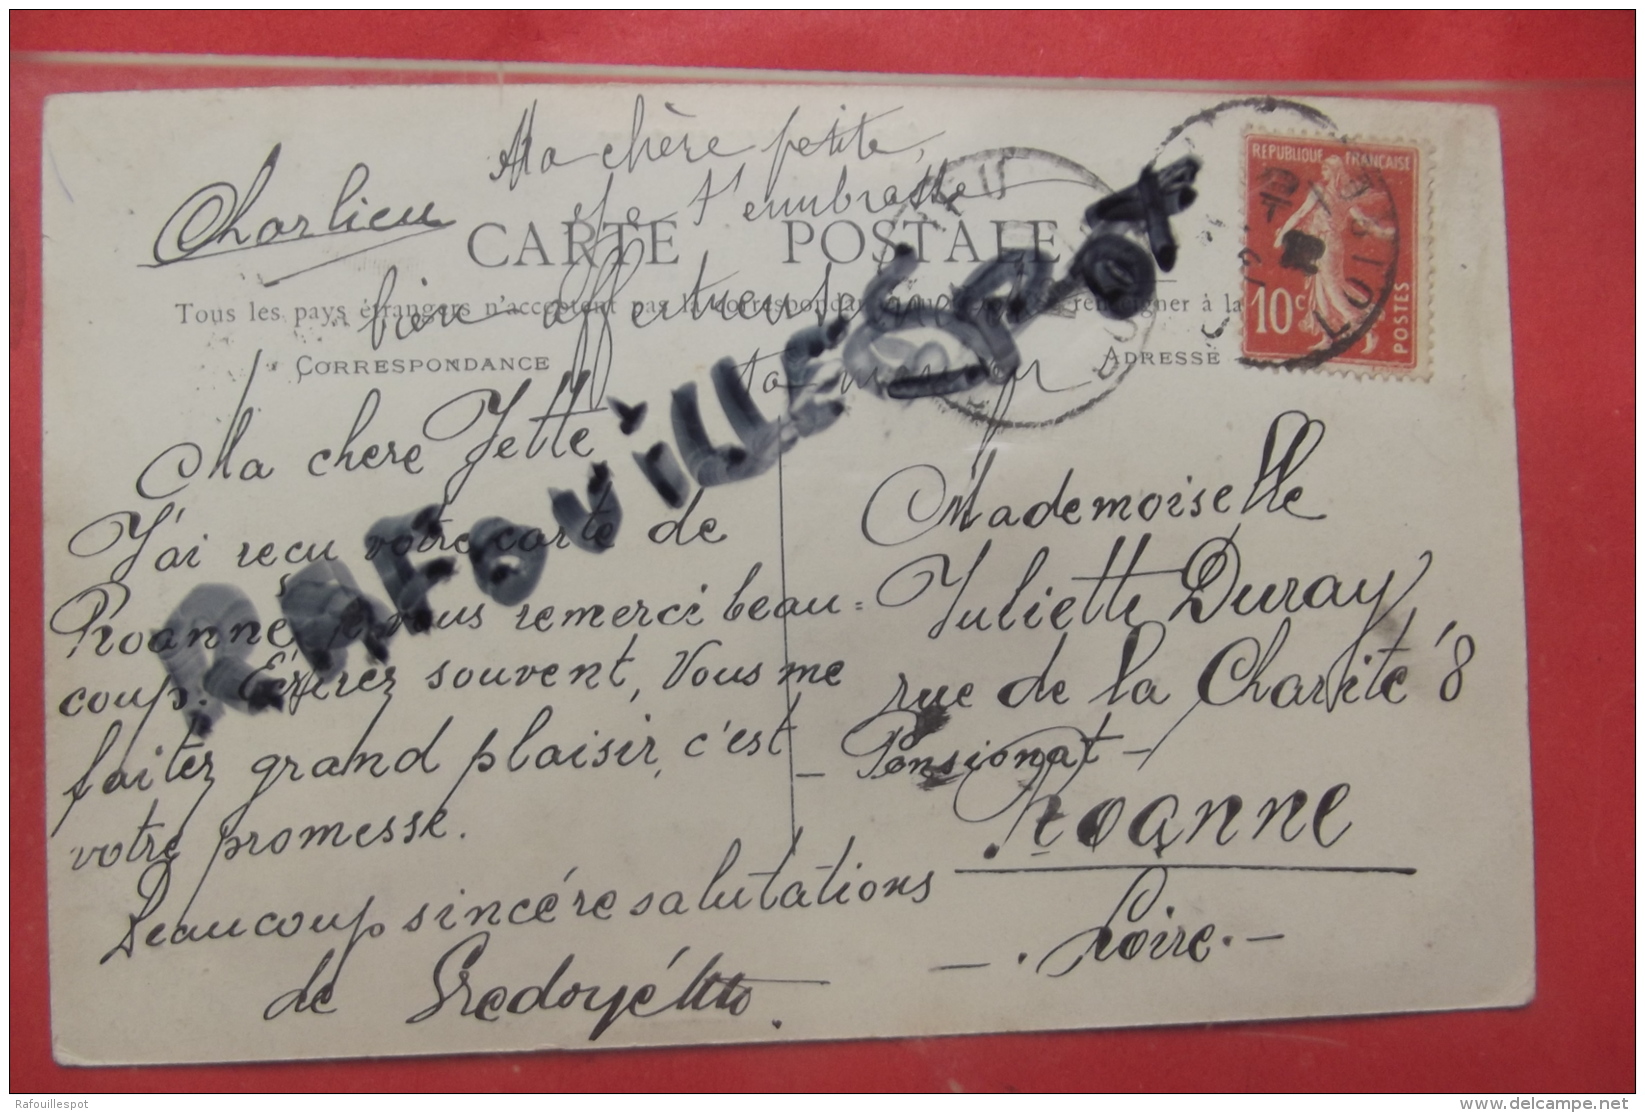 Ma chère petite,
Je t'embrasse
Charlieu
CARTE POSTALE
bien affectueus
Tous les pays étrangers n'acceptent pas la correspondance à la
CORRESPONDANCE
ta
ADRESSE
REPUBLIQUE FRANÇAISE
10c
POSTES
RAFouiLLESPOT
Ma chere Jette
J'ai reçu votre carte de
Roanne, je vous remercie beau=
coup. Ecrirez souvent, Vous me
faitez grand plaisir, c'est
votre promesse.
Beaucoup sincére salutations
de
Mademoiselle
Juliette Duray
rue de la Charité 8
- Pensionat -
Roanne
- . Loire. -
Rafouillespot
www.delcampe.net